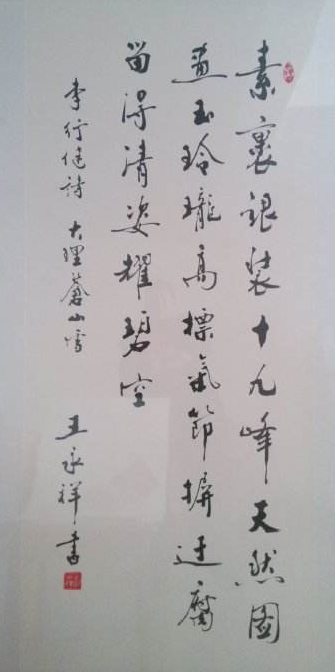 素裹銀裝十九峰天然圖
畫玉玲瓏高標氣節摒迂腐
留得清姿耀碧空
李行健詩 大理蒼山雪 王承祥書